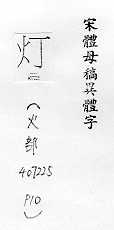 宋體母稿異體字
灯
二
（火部
407225
P10）